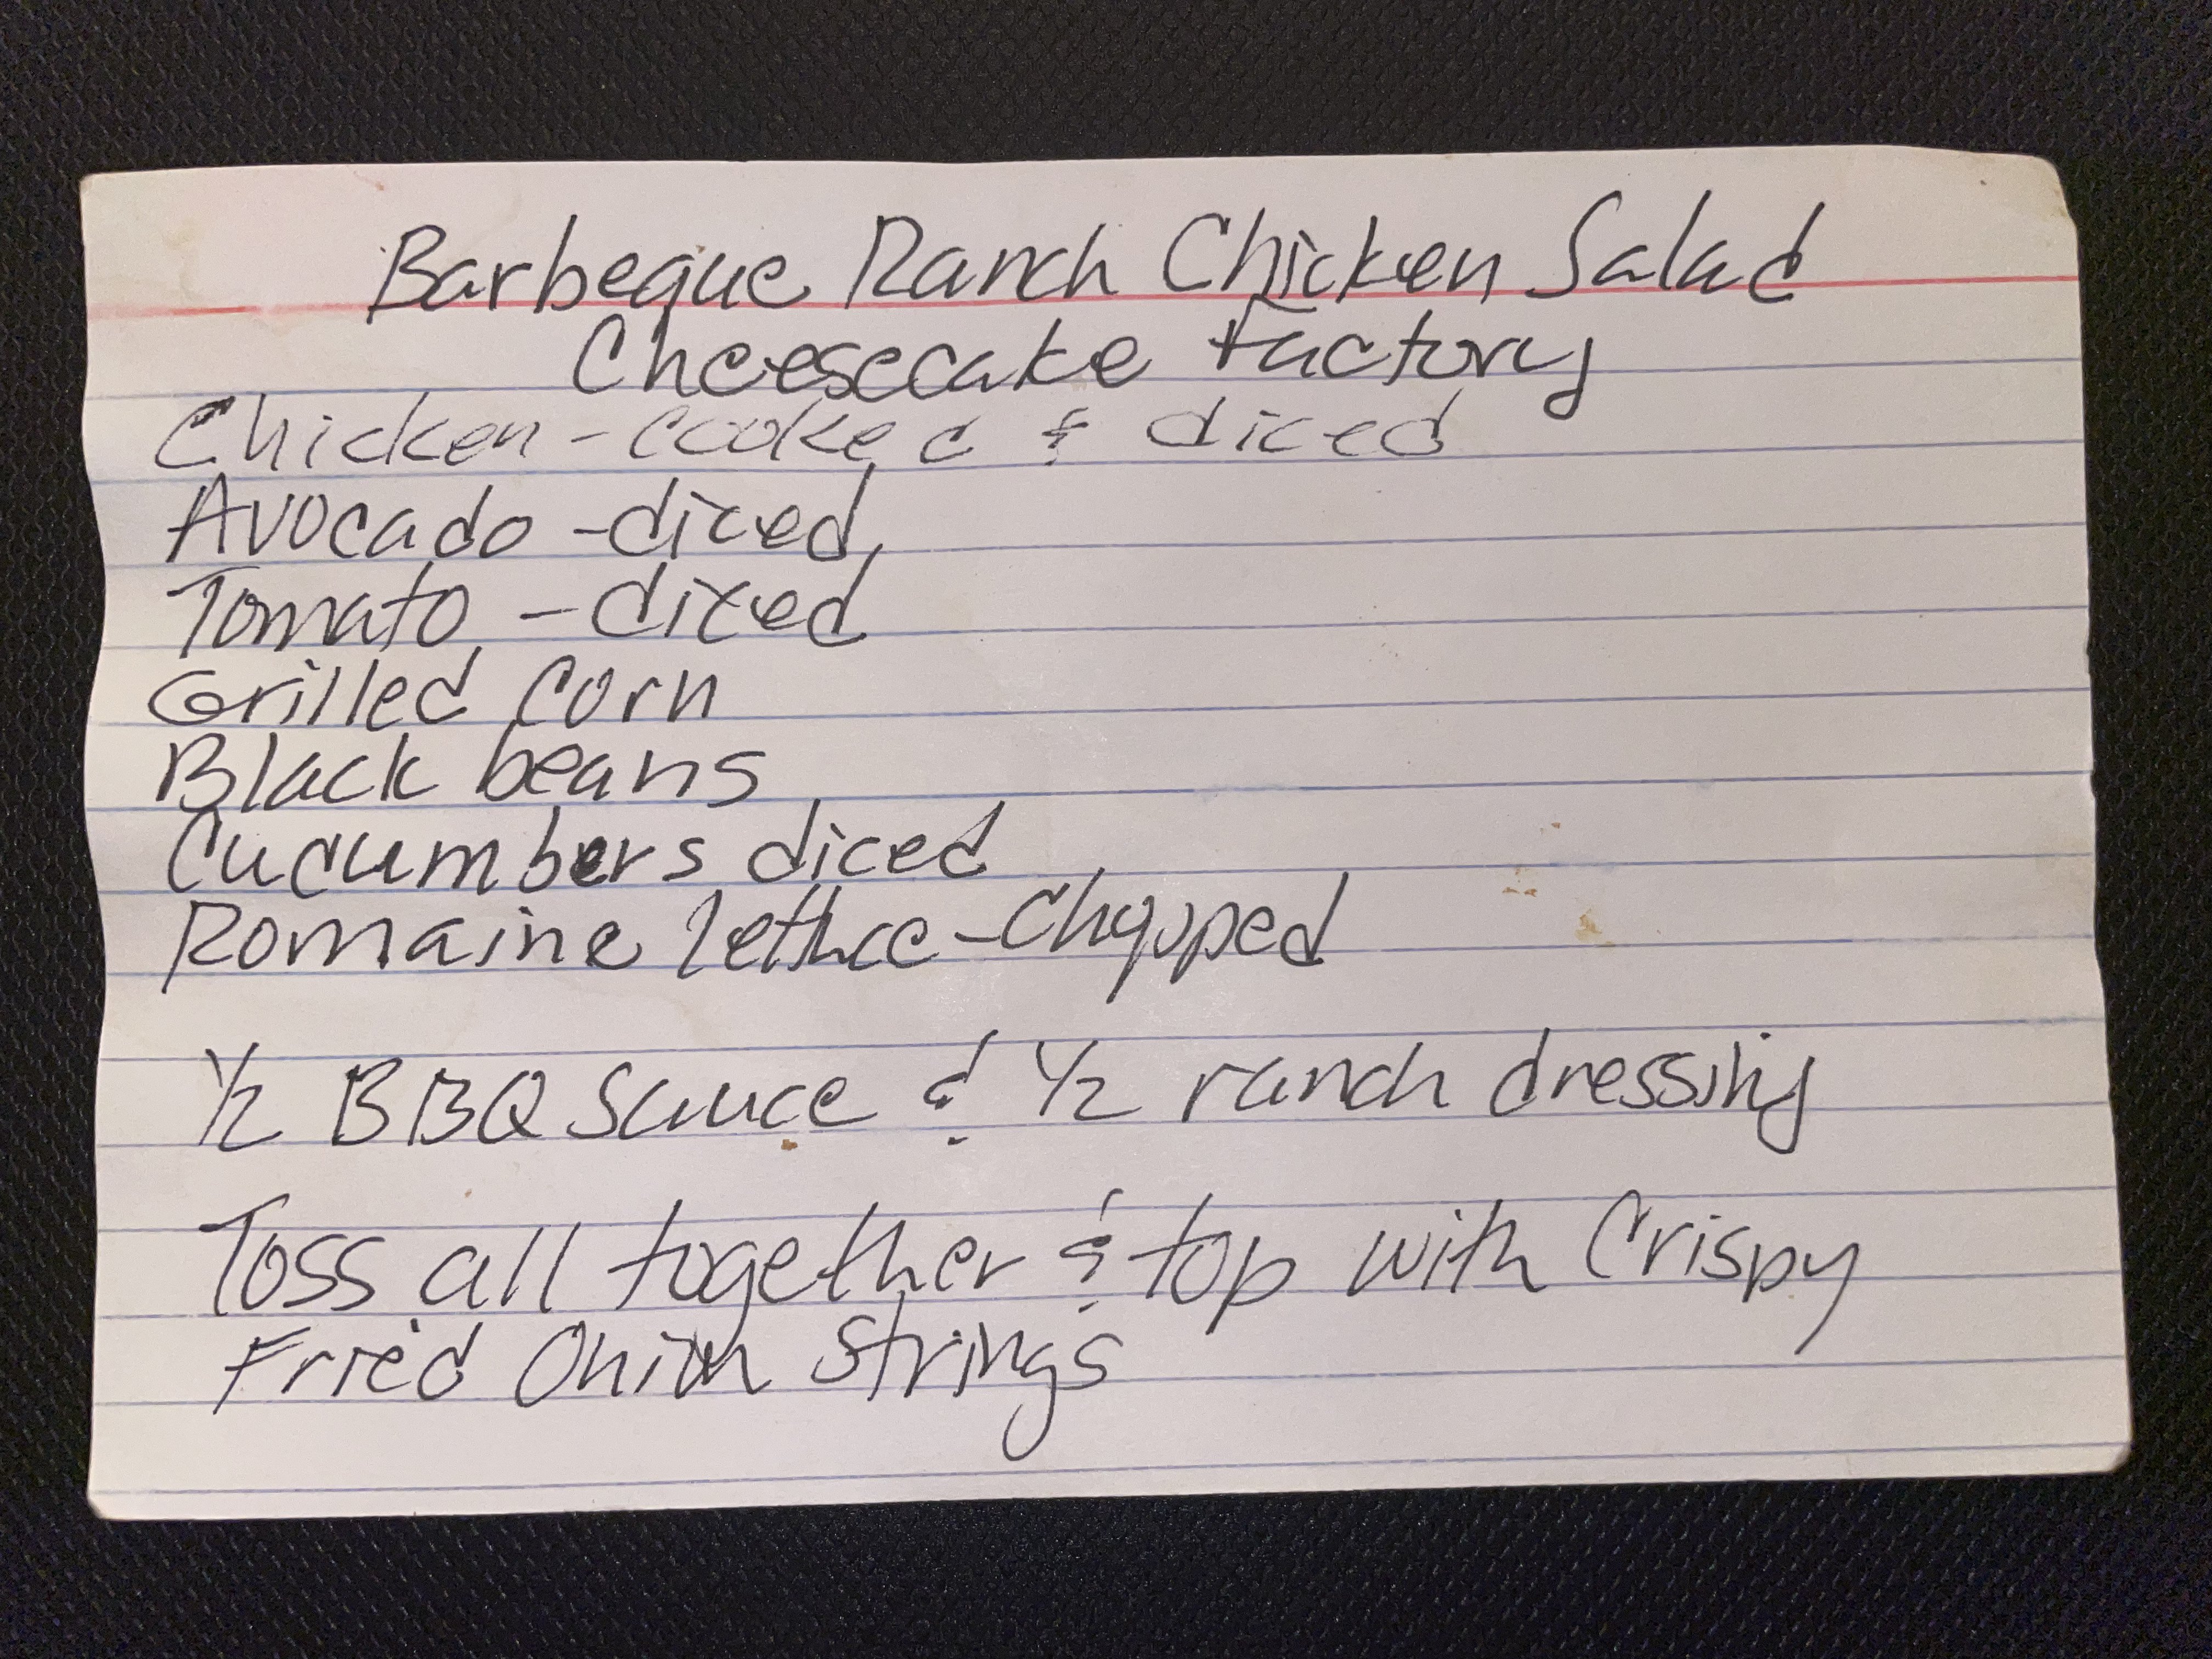 Barbeque Ranch Chicken Salad
Cheesecake Factory
Chicken - cooked & diced
Avocado - diced
Tomato - diced
Grilled Corn
Black beans
Cucumbers diced
Romaine lettuce - Chopped
1/2 BBQ Sauce & 1/2 ranch dressing
Toss all together & top with Crispy
Fried Onion Strings